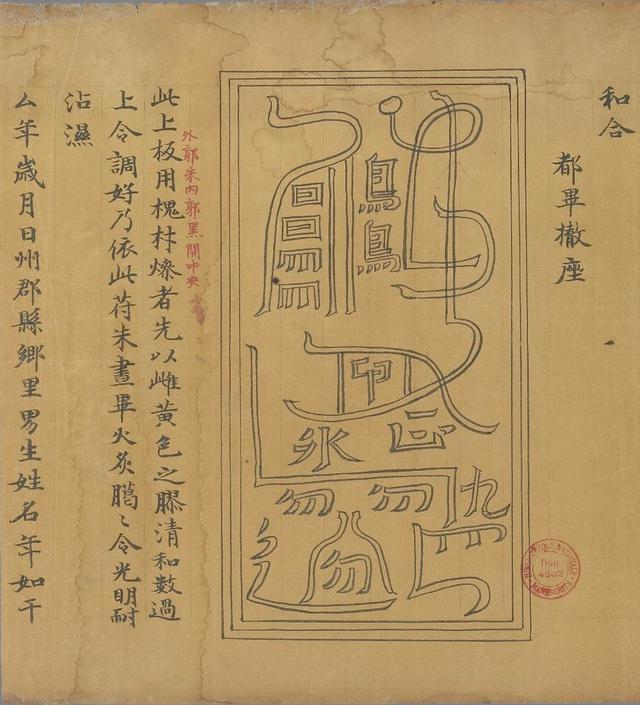 和合
都畢撤座
外郭朱内郭黑開中央
此上板用槐材燥者先以雌黄色之膠清和數過
上令調好乃依此符朱畫畢火炙臈〻令光明耐
沾濕
厶年歲月日州郡縣鄉里男生姓名年如干
Don
4502
MANUSCRITS